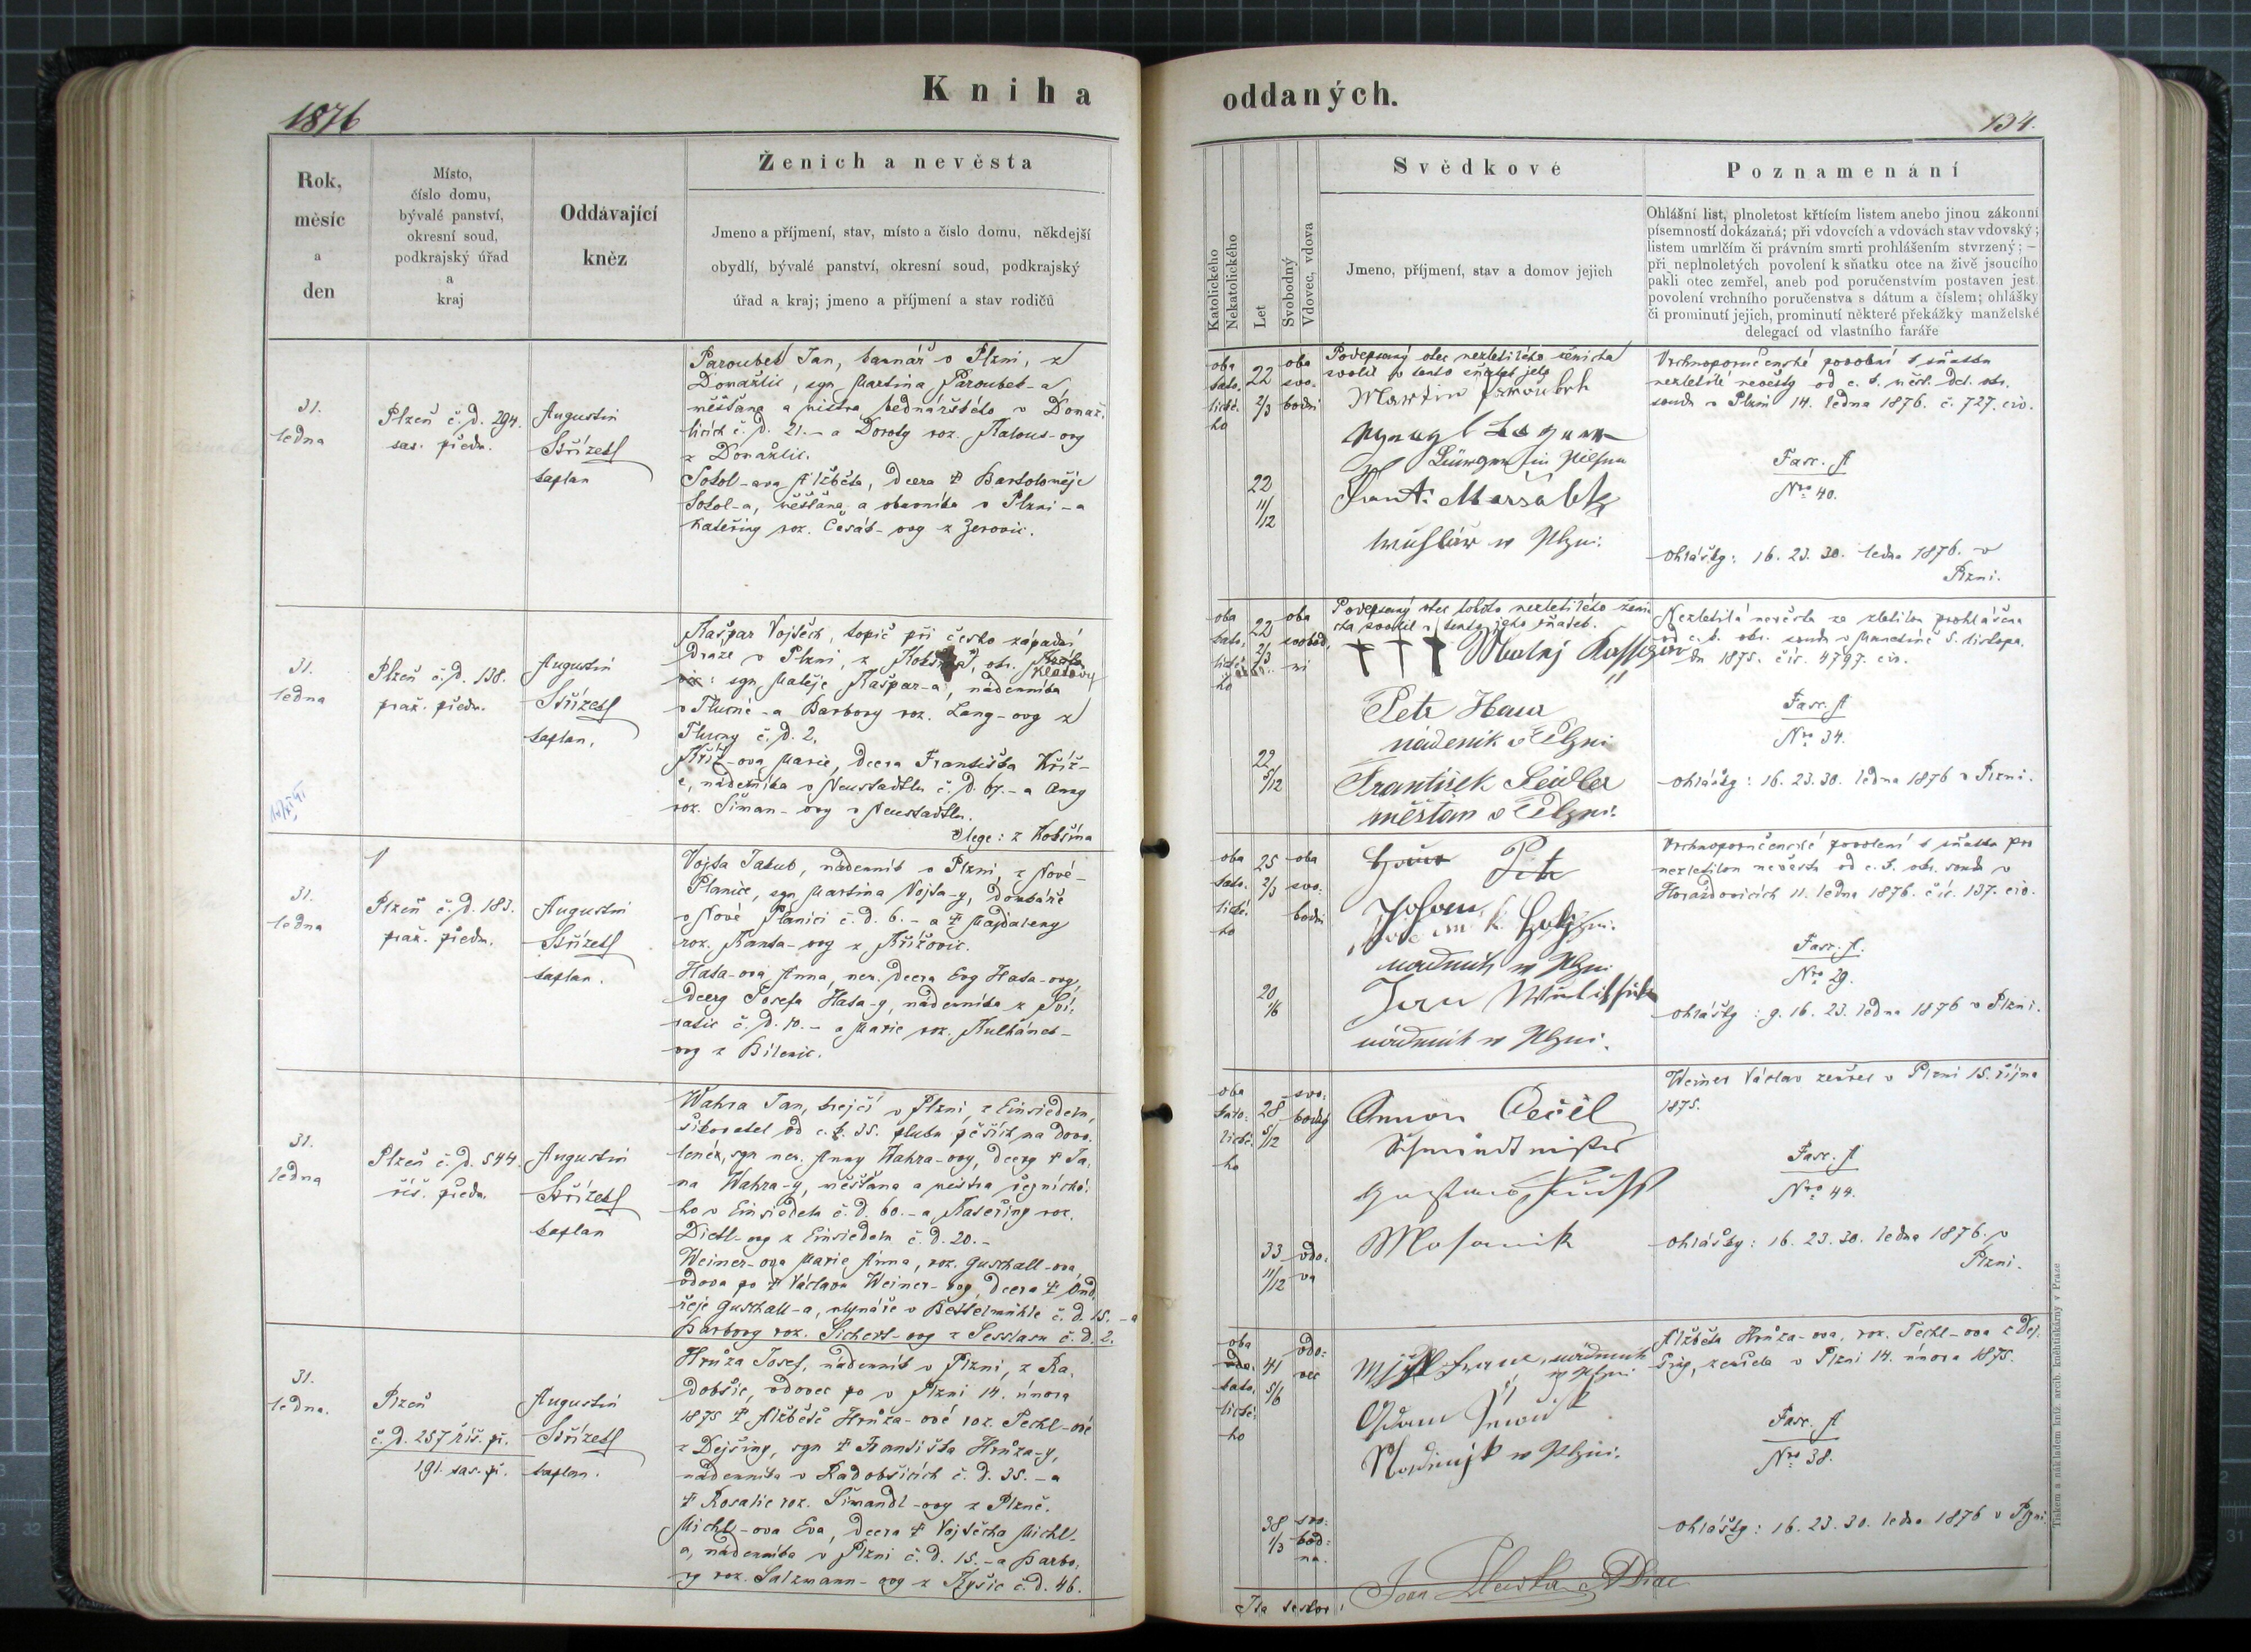 Kniha
oddaných.
1876
134.
Rok,
měsíc
a
den
Místo,
číslo domu,
bývalé panství,
okresní soud,
podkrajský úřad
a
kraj
Oddávající
kněz
Ženich a nevěsta
Jmeno a příjmení, stav, místo a číslo domu, někdejší
obydlí, bývalé panství, okresní soud, podkrajský
úřad a kraj; jmeno a příjmení a stav rodičů
Katolického
Nekatolického
Let
Svobodný
Vdovec, vdova
Svědkové
Jmeno, příjmení, stav a domov jejich
Poznamenání
Ohlášní list, plnoletost křtícím listem anebo jinou zákonní
písemností dokázaná; při vdovcích a vdovách stav vdovský;
listem umrlčím či právním smrti prohlášením stvrzený; —
při neplnoletých povolení k sňatku otce na živě jsoucího
pakli otec zemřel, aneb pod poručenstvím postaven jest
povolení vrchního poručenstva s dátum a číslem; ohlášky
či prominutí jejich, prominutí některé překážky manželské
delegací od vlastního faráře
31.
ledna
Plzeň č. d. 294.
sas. předm.
Augustin
Střízek
kaplan
Paroubek Jan, v Plzni, z
Domažlic, syn Martina Paroubek-a
měšťana a mistra bednářského v Domaž-
licích č. d. 21. – a Doroty roz. Kalous-ovy
z Domažlic.
Sokol-ova Alžběta, dcera † Bartoloměje
Sokol-a, měšťana a obuvníka v Plzni – a
Kateřiny roz. Čásák-ovy z Žerovic.
oba
kato-
lické-
ho
22
2/3
22
11/12
oba
svo-
bodni
Podepsaný otec nezletilého ženicha
svolil k tento sňatek jeho
Martin Paroubek
Frant. Maršálek
truhlář w Plzni.
Vrchnoporučenské povolení k sňatku
nezletilé nevěsty od c. k. měst. del. okr.
soudu v Plzni 14. ledna 1876. č. 727. civ.
Fasc. A
Nro 40.
Ohlášky: 16. 23. 30. ledna 1876. v
Plzni.
31.
ledna
Plzeň č. d. 138.
praž. předm.
Augustin
Střízek
kaplan.
Kašpar Vojtěch, topič při česko západní
dráze v Plzni, z okr.
Klatovy
syn Matěje Kašpar-a, nádenníka
v Tlumé – a Barbory roz. Lang-ovy z
Tlumy č. d. 2.
Kříž-ova Marie, dcera Františka Kříž-
e, nádenníka v Neustadtlu č. d. 67. – a Anny
roz. Šiman-ovy v Neustadtlu.
lege: z Kokšína
oba
kato-
lické-
ho
22
2/3
22
5/12
oba
svobod-
ni
Podepsaný otec tohoto nezletilého ženi-
cha svolil v tento jeho sňatek.
† † † Matěj Kašpar
Petr Haur
nádeník v Plzni
František Seidler
měšťan v Plzni.
Nezletilá nevěsta za zletilou prohlášena
od c. k. okr. soudu v Manetíně 5. listopa-
du 1875. čís. 4797. civ.
Fasc. A
Nro 34.
Ohlášky: 16. 23. 30. ledna 1876 v Plzni.
31.
ledna
Plzeň č. d. 183.
praž. předm.
Augustin
Střízek
kaplan.
Vojta Jakub, nádenník v Plzni, z Nové
Plánice, syn Martina Vojta-y, domkáře
v Nové Plánici č. d. 6. – a † Majdaleny
roz. Kanta-ovy z Křížovic.
Hasa-ova Anna, nem. dcera Evy Hasa-ovy,
dcery Josefa Hasa-y, nádenníka z Svi-
ratic č. d. 10. – a Marie roz. Kulhánek-
ovy z Bílenic.
oba
kato-
lické-
ho
25
2/3
20
1/6
oba
svo-
bodni
Petr
nádenník w Plzni
Jan
nádenník w Plzni.
Vrchnoporučenské povolení k sňatku pro
nezletilou nevěstu od c. k. okr. soudu v
Horažďovicích 11. ledna 1876. čís. 137. civ.
Fasc. A.
Nro 29.
Ohlášky: 9. 16. 23. ledna 1876 v Plzni.
31.
ledna
Plzeň č. d. 544.
říš. předm.
Augustin
Střízek
kaplan
Wahra Jan, krejčí v Plzni, z Einsiedeln,
šikovatel od c. k. 35. pluku pěších na dovo-
lené, syn nem. Anny Wahra-ovy, dcery † Ja-
na Wahra-y, měšťana a mistra řeznické-
ho v Einsiedeln č. d. 60. – a Kateřiny roz.
Dietl-ovy z Einsiedeln č. d. 20. –
Weiner-ova Marie Anna, roz. Guschall-ova,
vdova po † Václavu Weiner-ovy, dcera † Ond-
řeje Guschall-a, mlynáře v Bettelmühle č. d. 15. – a
Barbory roz. Sichert-ovy z č. d. 2.
oba
kato-
lické-
ho
28
5/12
33
11/12
svo-
bodný
vdo-
va
Weiner Václav zemřel v Plzni 15. října
1875.
Fasc. A
Nro 44.
Ohlášky: 16. 23. 30. ledna 1876. v
Plzni.
31.
ledna.
Plzeň
č. d. 257 říš. př.
191. sas. př.
Augustin
Střízek
kaplan.
Hrůza Josef, nádenník v Plzni, z Ra-
dobšic, vdovec po v Plzni 14. února
1875 † Alžbětě Hrůza-ové roz. Techl-ové
z Dejšiny, syn † Františka Hrůza-y,
nádenníka v Radobšicích č. d. 35. – a
† Rosalie roz. Šimandl-ovy z Plzně.
Michl-ova Eva, dcera † Vojtěcha Michl-
a, nádenníka v Plzni č. d. 15. – a Barbo-
ry roz. Salzmann-ovy z Kyšic č. d. 46.
oba
kato-
lické-
ho
41
5/6
38
1/3
vdo-
vec
svo-
bod-
na.
Adam
w Plzni.
Alžběta Hrůza-ova, roz. Techl-ova z Dej-
šiny, zemřela v Plzni 14. února 1875.
Fasc. A
Nro 38.
Ohlášky: 16. 23. 30. ledna 1876 v Plzni.
Tiskem a nákladem kníž. arcib. knihtiskárny v Praze